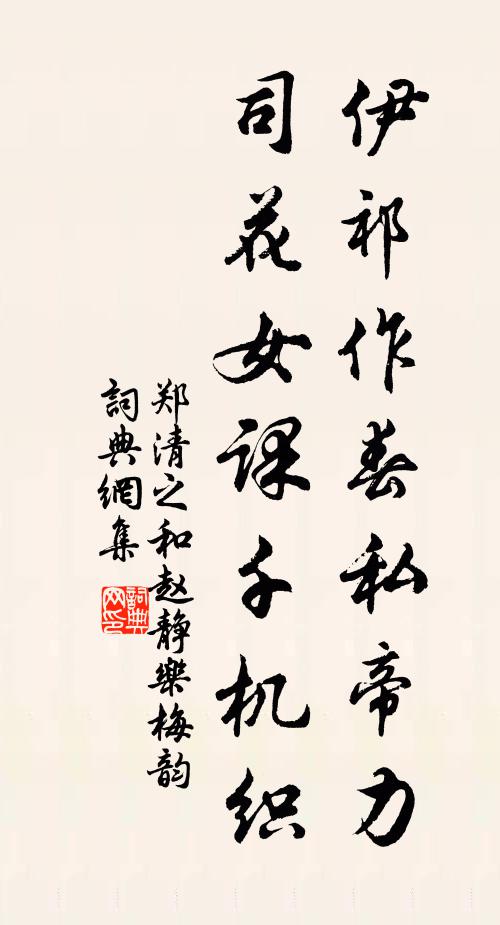 伊祁作春私帝力
司花女课千机织
郑清之和赵静樂梅韵
詞典網集
詞典
网印